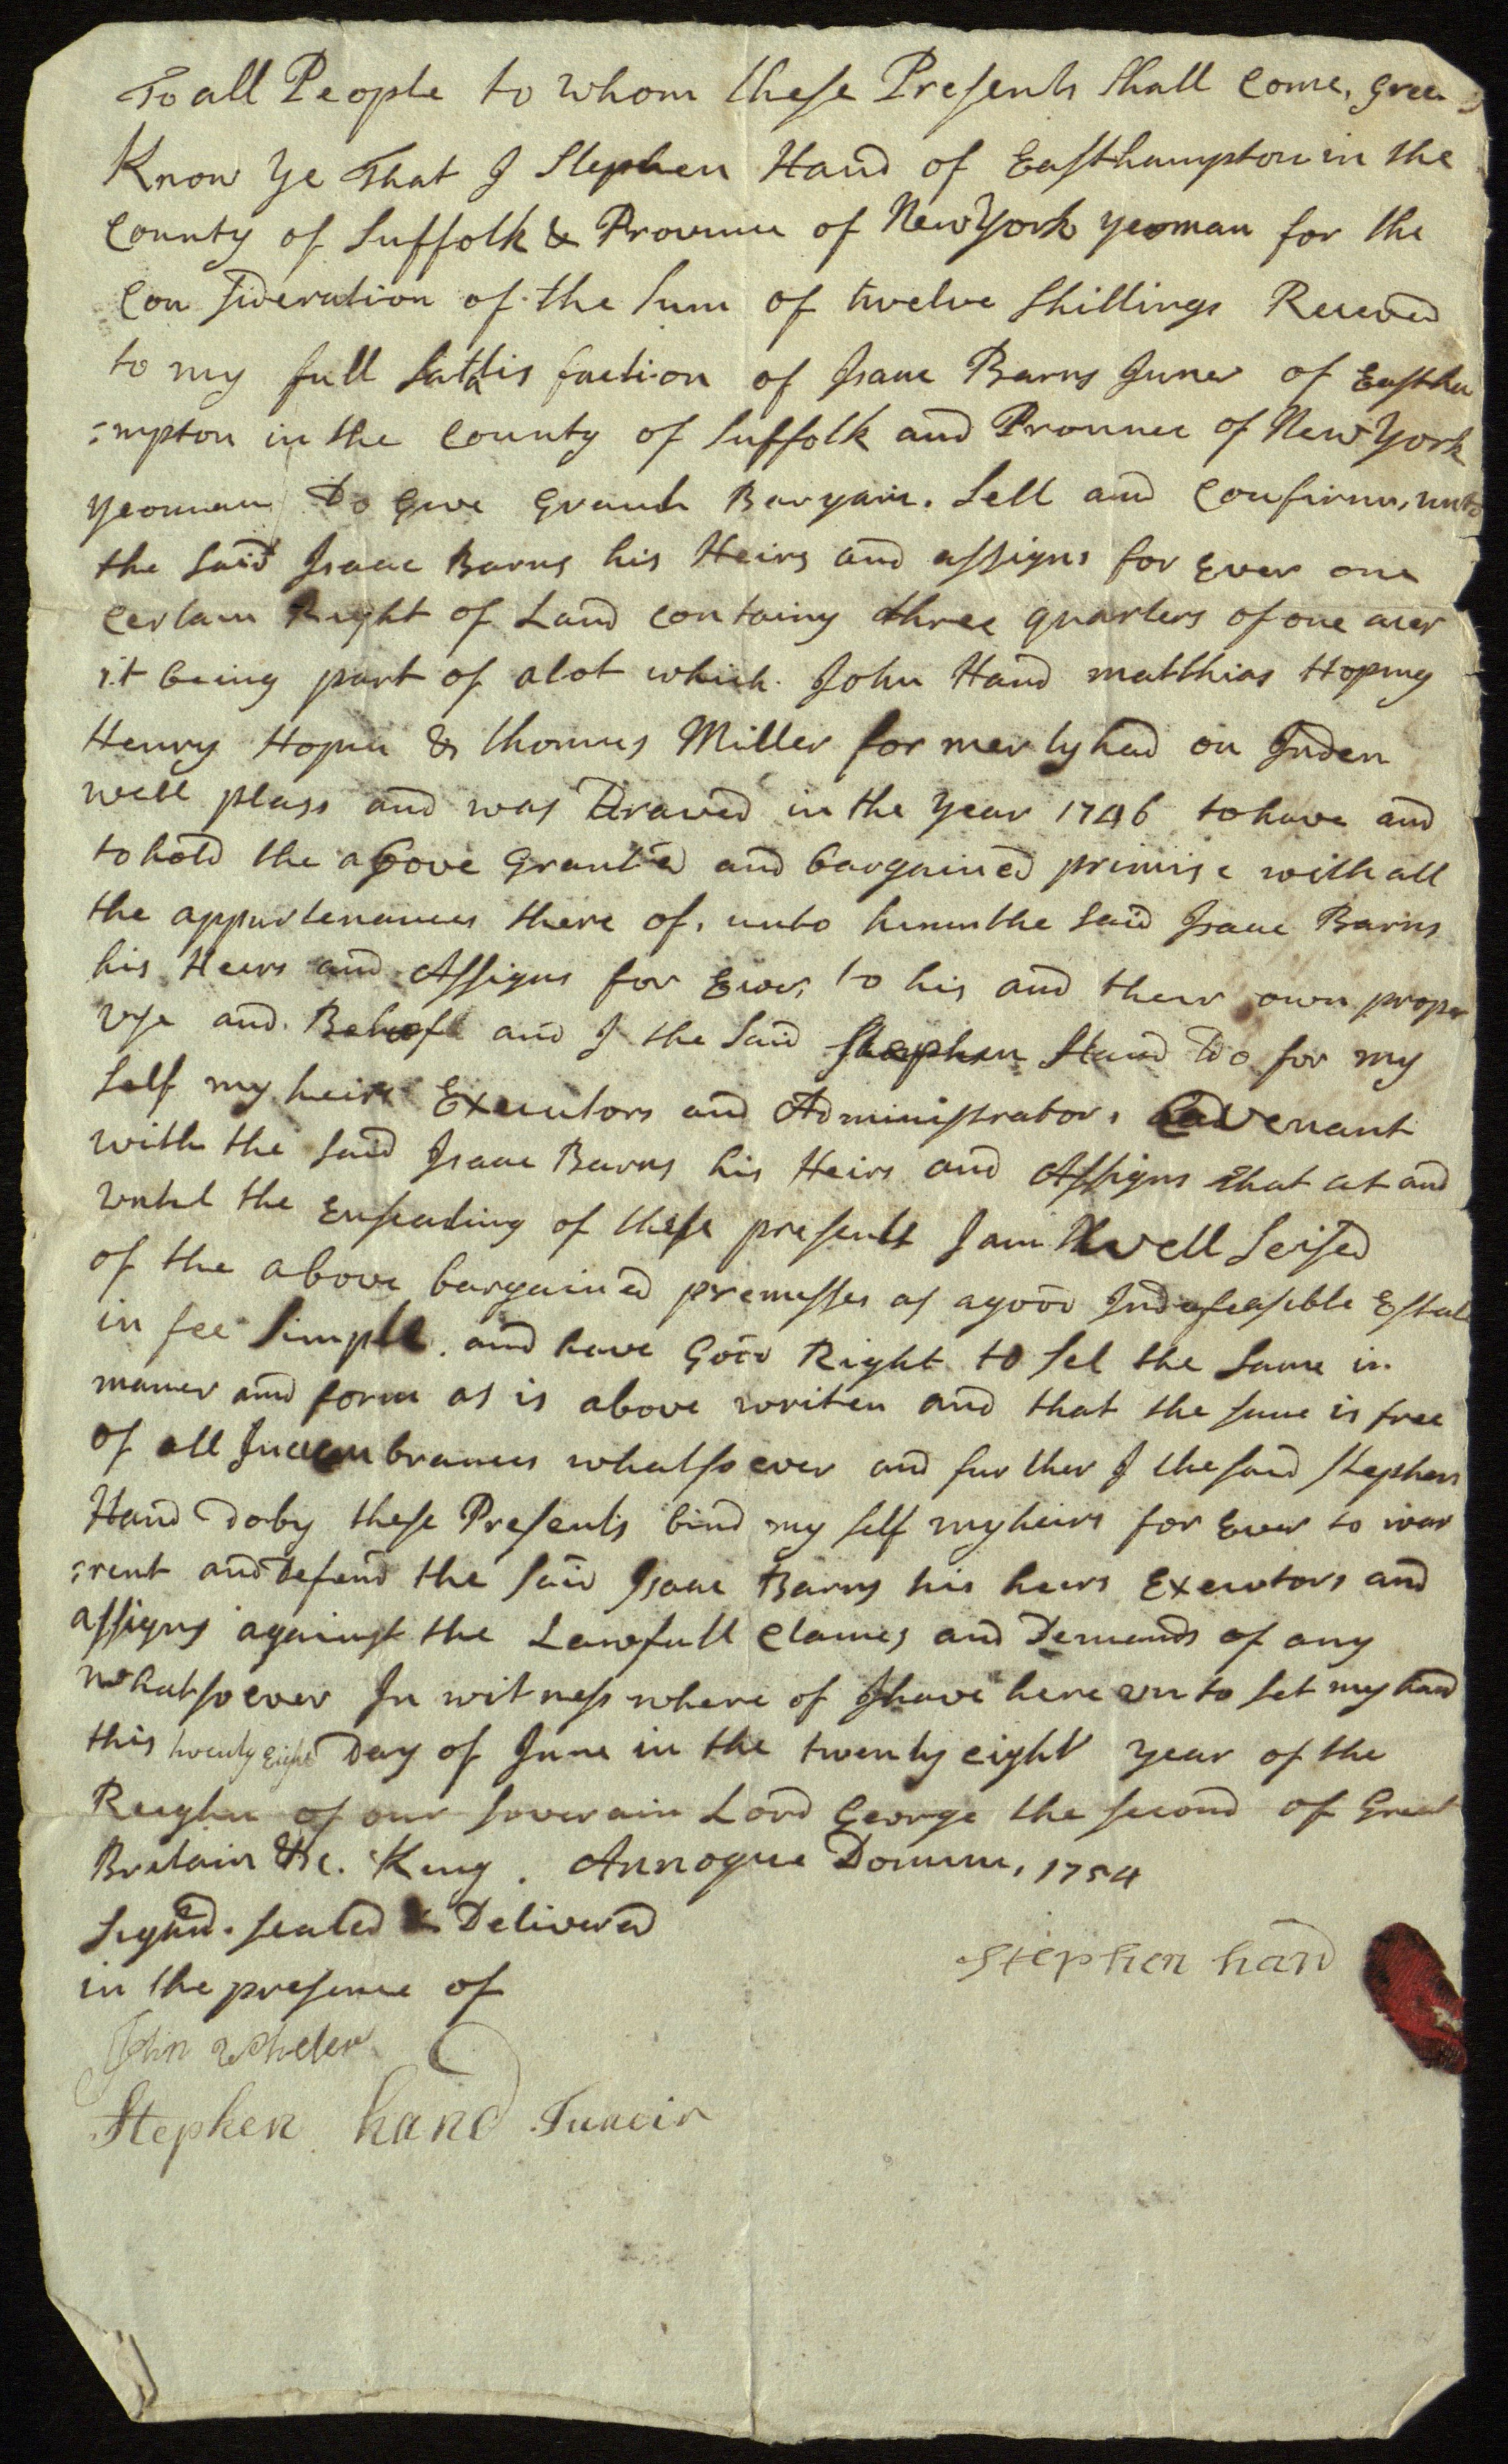 To all People to whom these Presents Shall Come, Gree
Know ye That I Stephen Hand of Easthampton in the
County of Suffolk & Province of New York yeoman for the
Con sideration of the Sum of twelve Shillings Receved
to my full Sattis faction of Isaac Barns Juner of Eastha
=mpton in the County of Suffolk and Province of New York
yeoman Do Give Grant Bargain. Sell and Confirm, unto
the Said Isaac Barns his Heirs and assigns for Ever one
Certain Right of Land containg three quarters of one acer
it being part of a lot which John Hand matthias Hoping
Henry Hopin & thomas Miller for merly had on Inden
well plass and was Drawed in the year 1746 to have and
to hold the above Granted and bargained primise with all
the appurtenances there of, unto him the Said Isaac Barns
his Heers and Assigns for Ever, to his and their own proper
Use and Behoft and I the Said Stephen Hand Do for my
Self my heirs Executors and Administrators Covenant
with the Said Isaac Barns his Heirs and Assigns that at and
until the Ensealing of these presents I am Well Seised
of the above bargained premisses as a good Indefeasible Estate
in fee Simple. and have Good Right to Sel the Same in
maner and form as is above writen and that the same is free
of all Incumbrances whatso ever and fur ther I the said Stephen
Hand do by these Presents bind my self my heirs for Ever to war
=rent and Defend the Said Isaac Barns his heirs Executors and
assigns against the Lawfull Claimes and Demands of any
whatso ever In witness where of I have here un to Set my hand
this twenty Eight Day of June in the twenty eight year of the
Reighn of our soverain Lord George the second of Great
Bretain &c. King. Annoque Domini, 1754
Signed. sealed & Delivered
in the presence of
Stephen hand
John Wheler
Stephen hand Juneir